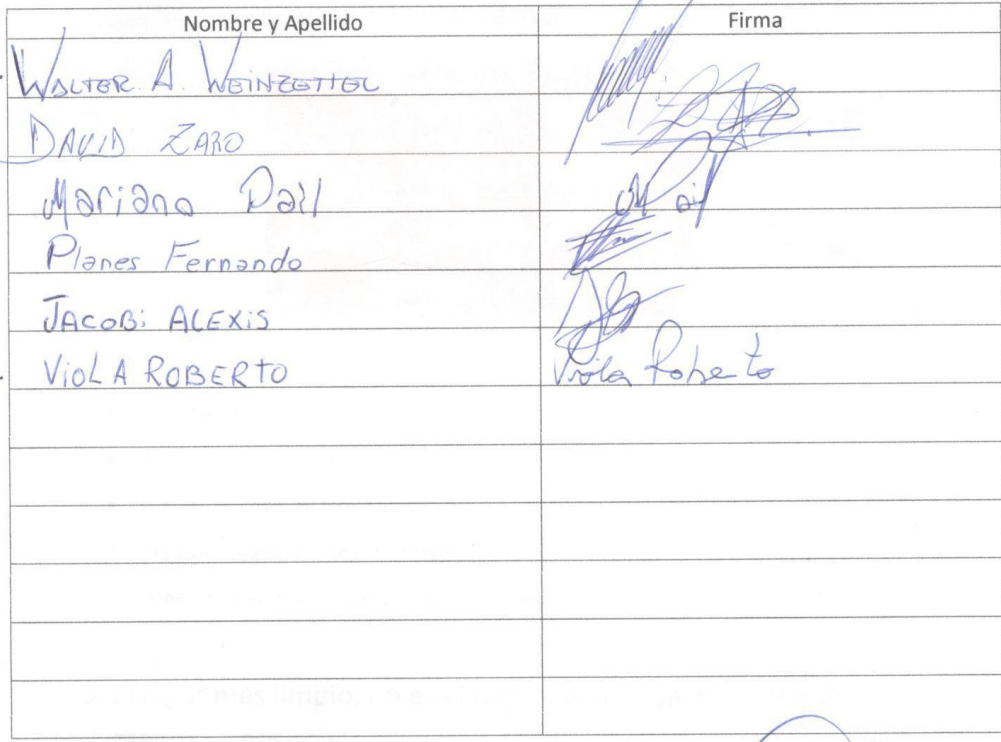 Nombre y Apellido Firma
WALTER. A. WEINZETTEL
DAVID ZARO
Mariano Dall
Planes Fernando
JACOBi ALEXiS
VioLA ROBERTO Viola Roberto
más limpio,